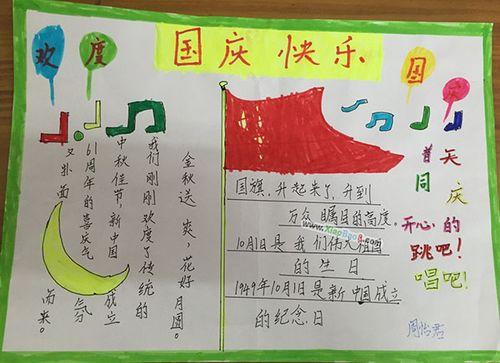 欢度
国庆快乐
国
金秋送爽，花好月圆。
我们刚刚欢度了传统的
中秋佳节，新中国成立
61周年的喜庆气氛
又扑面而来。
国旗，升起来了，升到
万众瞩目的高度，
10月1日是我们伟大祖国
的生日
1949年10月1日是新中国成立
的纪念日
普天同庆
开心的
跳吧！
唱吧！
周怡君